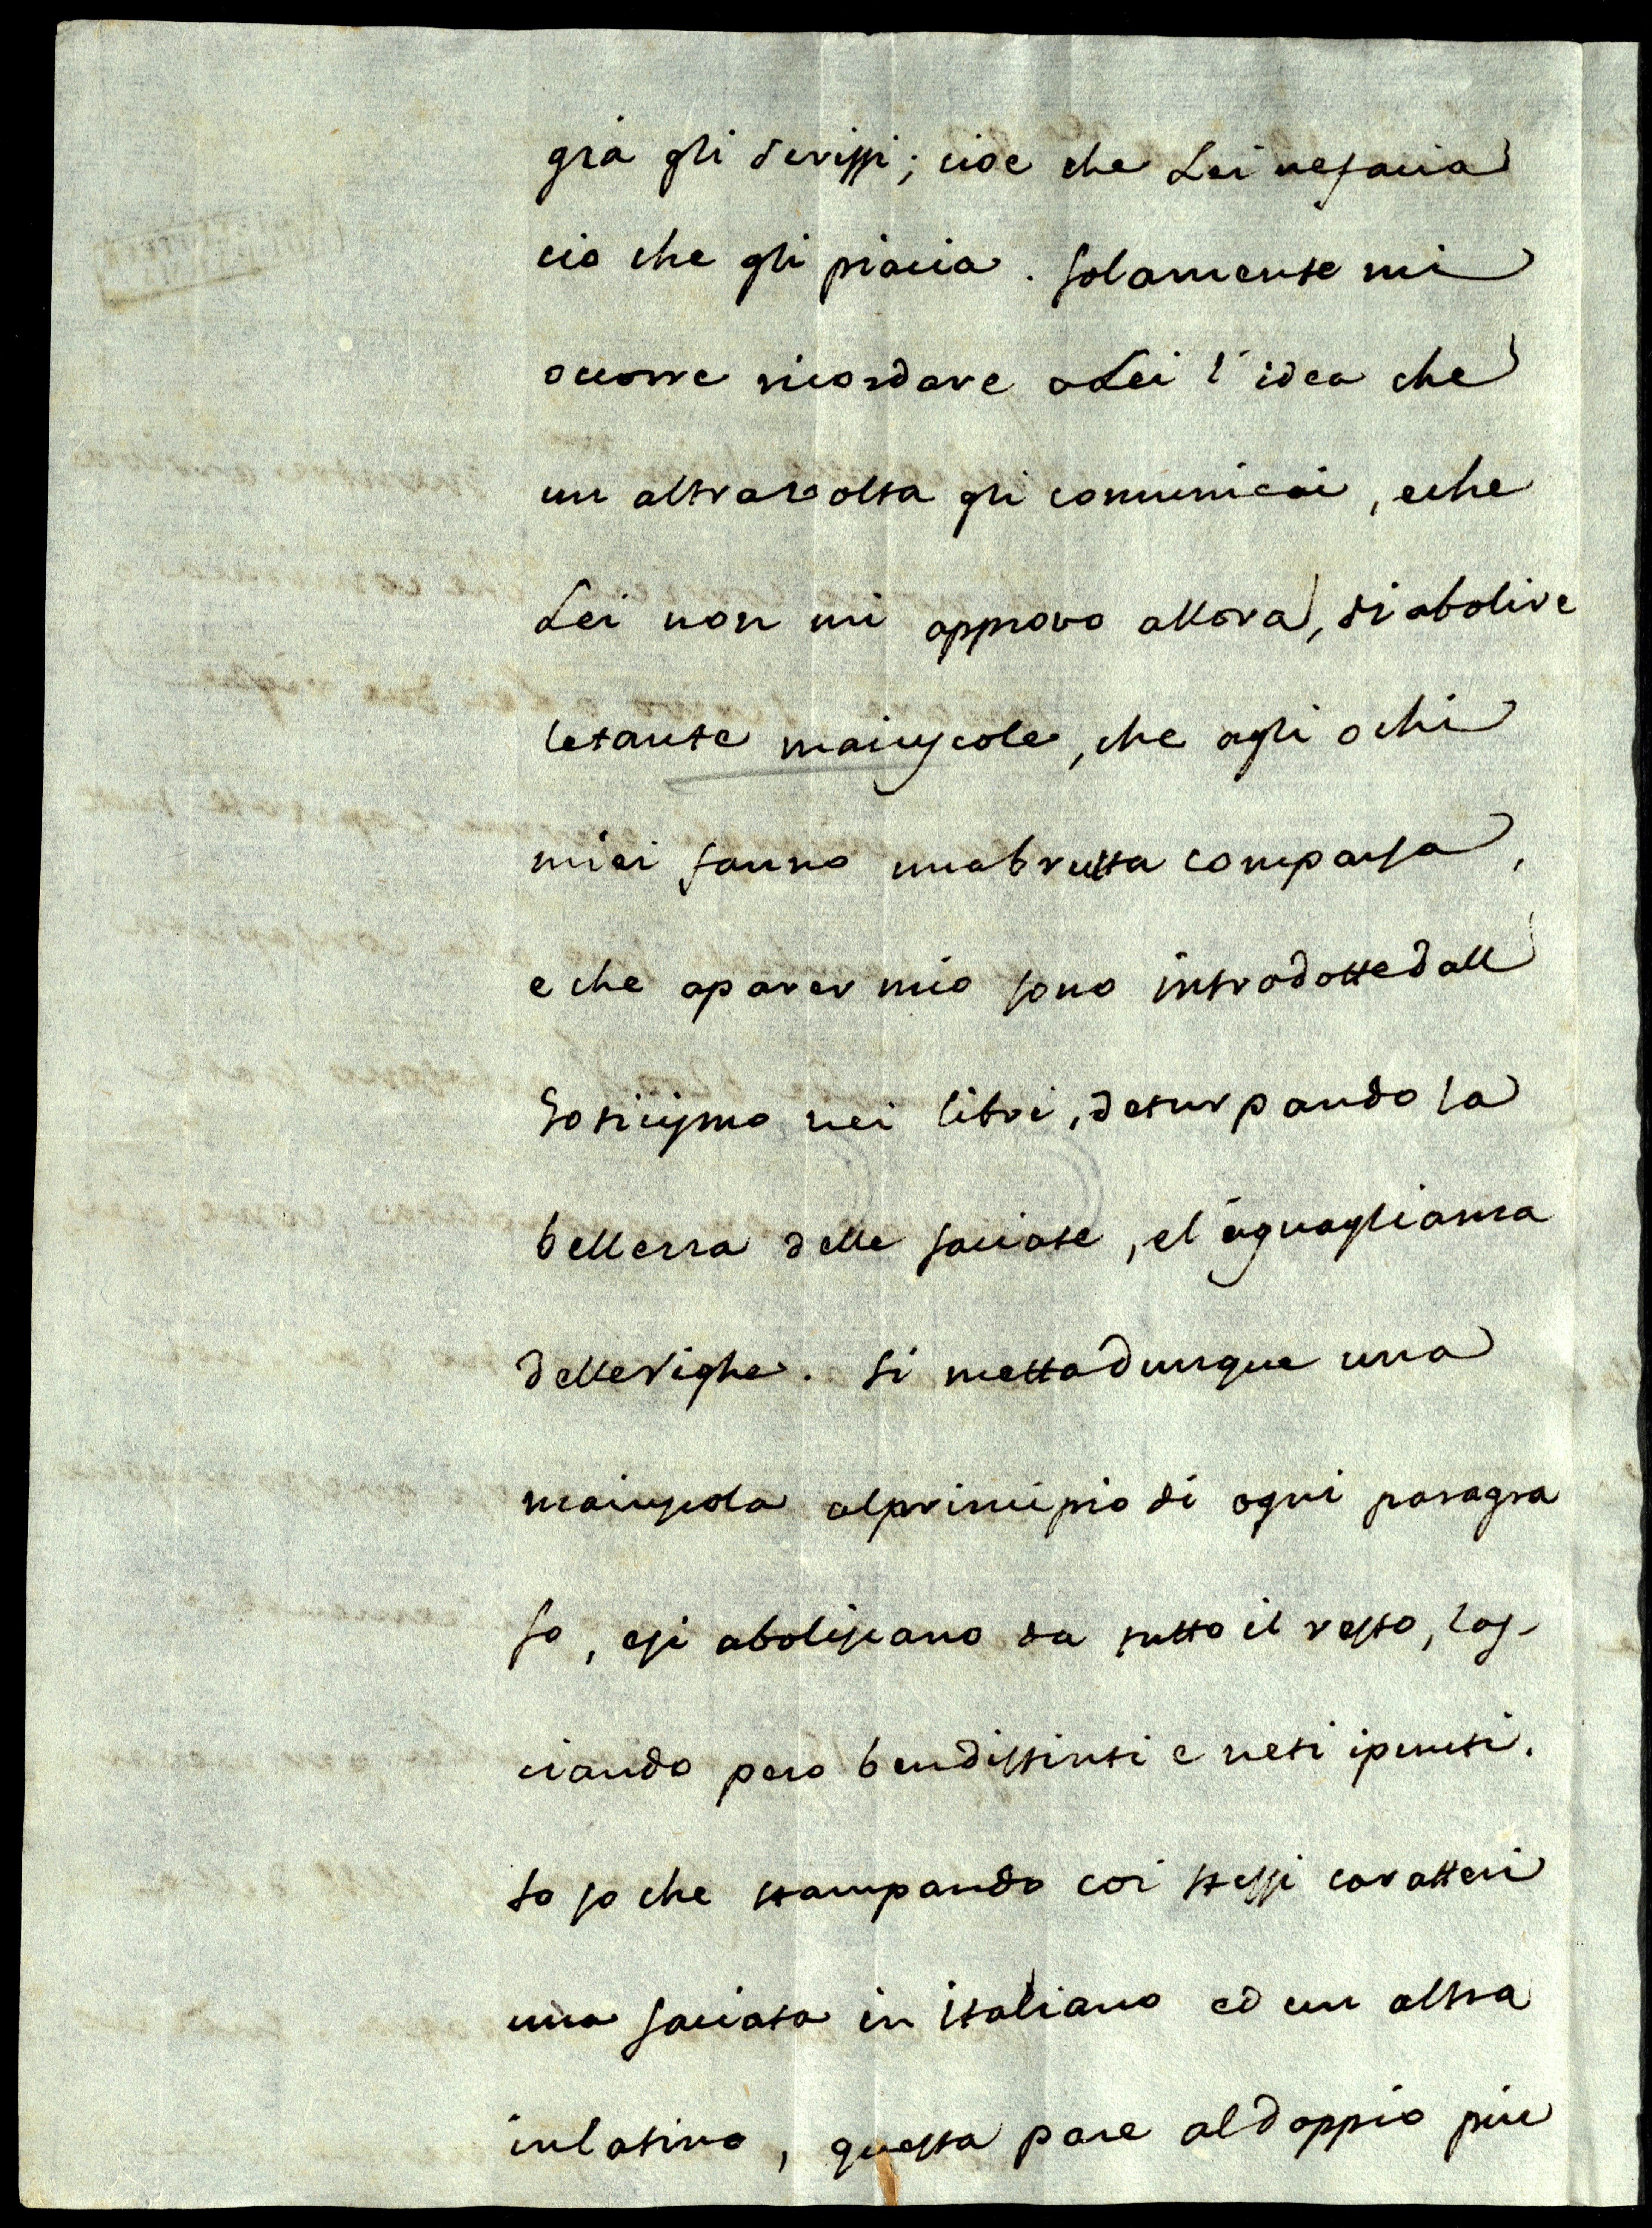 già gli scrissi; cioe che Lei ne facia
cio che gli piacia. Solamente mi
occorre ricordare a Lei l'idea che
un altra volta gli comunicai, e che
Lei non mi approvo allora, di abolire
le tante maiuscole, che agli ochi
miei fanno una brutta comparsa,
e che a parer mio sono introdotte dall
Goticismo nei libri, deturpando la
bellezza delle faciate, e l'aguaglianza
delle righe. Si metta dunque una
maiuscola al principio di ogni paragra
fo, e si aboliscano da tutto il resto, las-
ciando pero ben distinti e neti i punti.
Io so che stampando coi stessi caratteri
una faciata in italiano ed un altra
in latino, questa pare al doppio piu